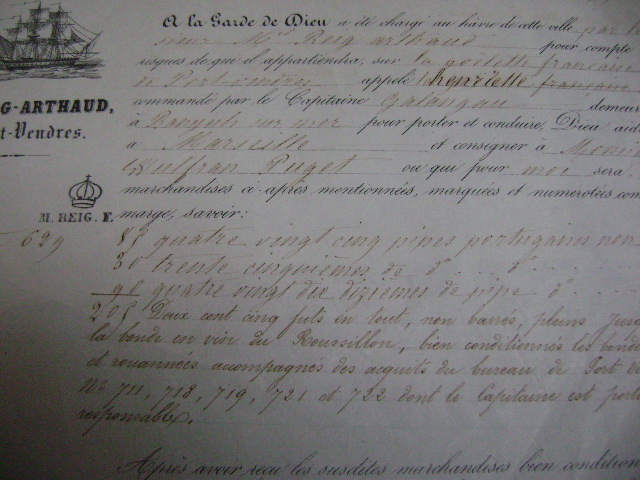 A la Garde de Dieu a été chargé au hâvre de cette ville par le
sieur Mel Reig arthaud pour compte
risques de qui il appartiendra, sur la goëlette française
de Port-vendres appelé l'henriette française
commandé par le Capitaine Galangau demeur
à Banyuls sur mer pour porter et conduire, Dieu aid
à Marseille et consigner à
Wulfran Puget ou qui pour moi sera
marchandises ci-après mentionnées, marquées et numerotées com
marge, savoir:
G-ARTHAUD,
t-Vendres.
M. REIG. F.
629
85 quatre vingt cinq pipes portugaises non
30 trente cinquièmes de do do
90 quatre vingt dix dizièmes de pipe do
205 Deux cent cinq futs en tout, non barrés, pleins jusq
la bonde en vin du Roussillon, bien conditionnés les bondes
et rouannées accompagnés des acquits du bureau de Port
No 711, 718, 719, 721 et 722 dont le Capitaine est porte
responsable.
Après avoir reçu les susdites marchandises bien condition